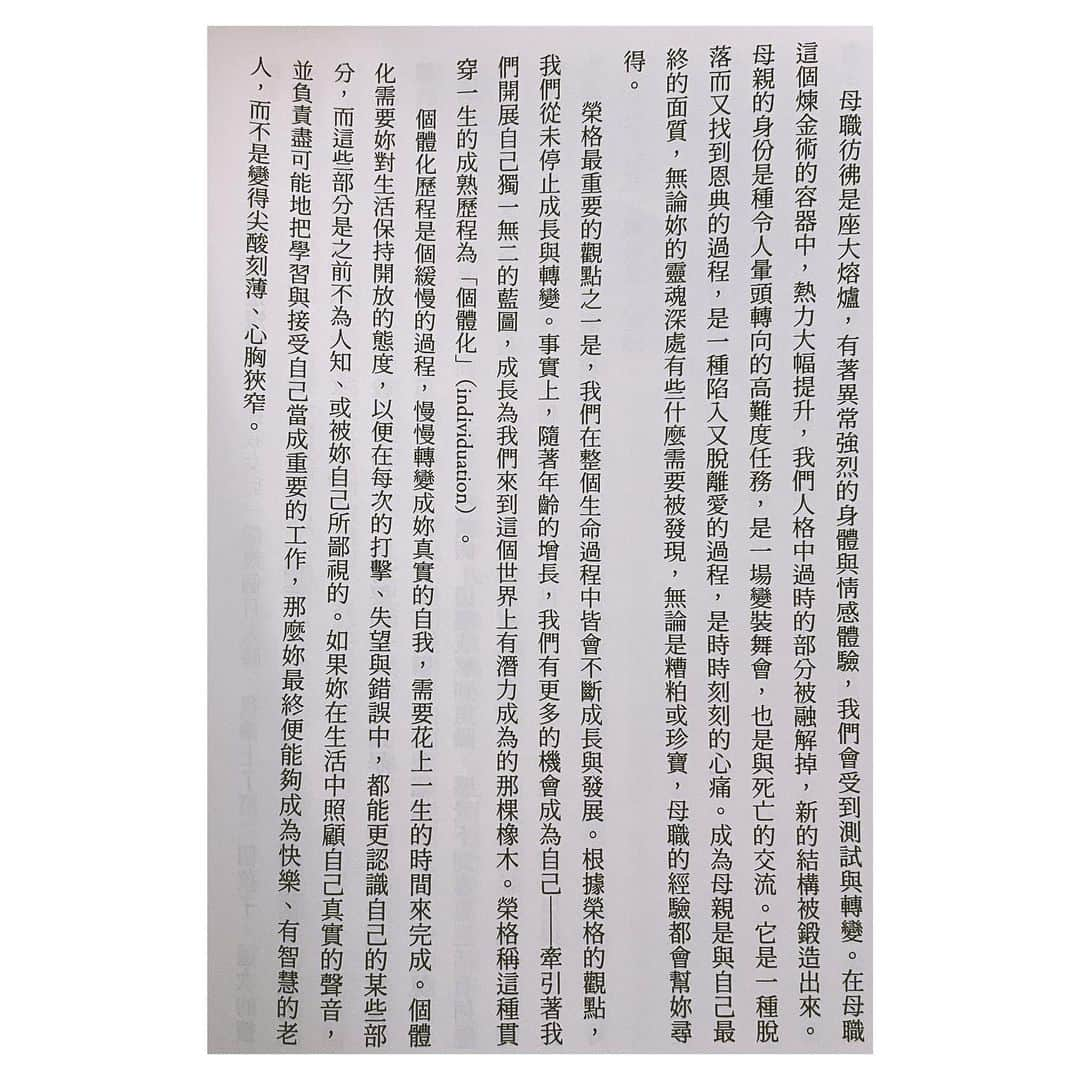 母職彷彿是座大熔爐，有著異常強烈的身體與情感體驗，我們會受到測試與轉變。在母職
這個煉金術的容器中，熱力大幅提升，我們人格中過時的部分被融解掉，新的結構被鍛造出來。
母親的身份是種令人暈頭轉向的高難度任務，是一場變裝舞會，也是與死亡的交流。它是一種脫
落而又找到恩典的過程，是一種陷入又脫離愛的過程，是時時刻刻的心痛。成為母親是與自己最
終的面質，無論妳的靈魂深處有些什麼需要被發現，無論是糟粕或珍寶，母職的經驗都會幫妳尋
得。
榮格最重要的觀點之一是，我們在整個生命過程中皆會不斷成長與發展。根據榮格的觀點，
我們從未停止成長與轉變。事實上，隨著年齡的增長，我們有更多的機會成為自己——牽引著我
們開展自己獨一無二的藍圖，成長為我們來到這個世界上有潛力成為的那棵橡木。榮格稱這種貫
穿一生的成熟歷程為「個體化」（individuation）。
個體化歷程是個緩慢的過程，慢慢轉變成妳真實的自我，需要花上一生的時間來完成。個體
化需要妳對生活保持開放的態度，以便在每次的打擊、失望與錯誤中，都能更認識自己的某些部
分，而這些部分是之前不為人知、或被妳自己所鄙視的。如果妳在生活中照顧自己真實的聲音，
並負責盡可能地把學習與接受自己當成重要的工作，那麼妳最終便能夠成為快樂、有智慧的老
人，而不是變得尖酸刻薄、心胸狹窄。